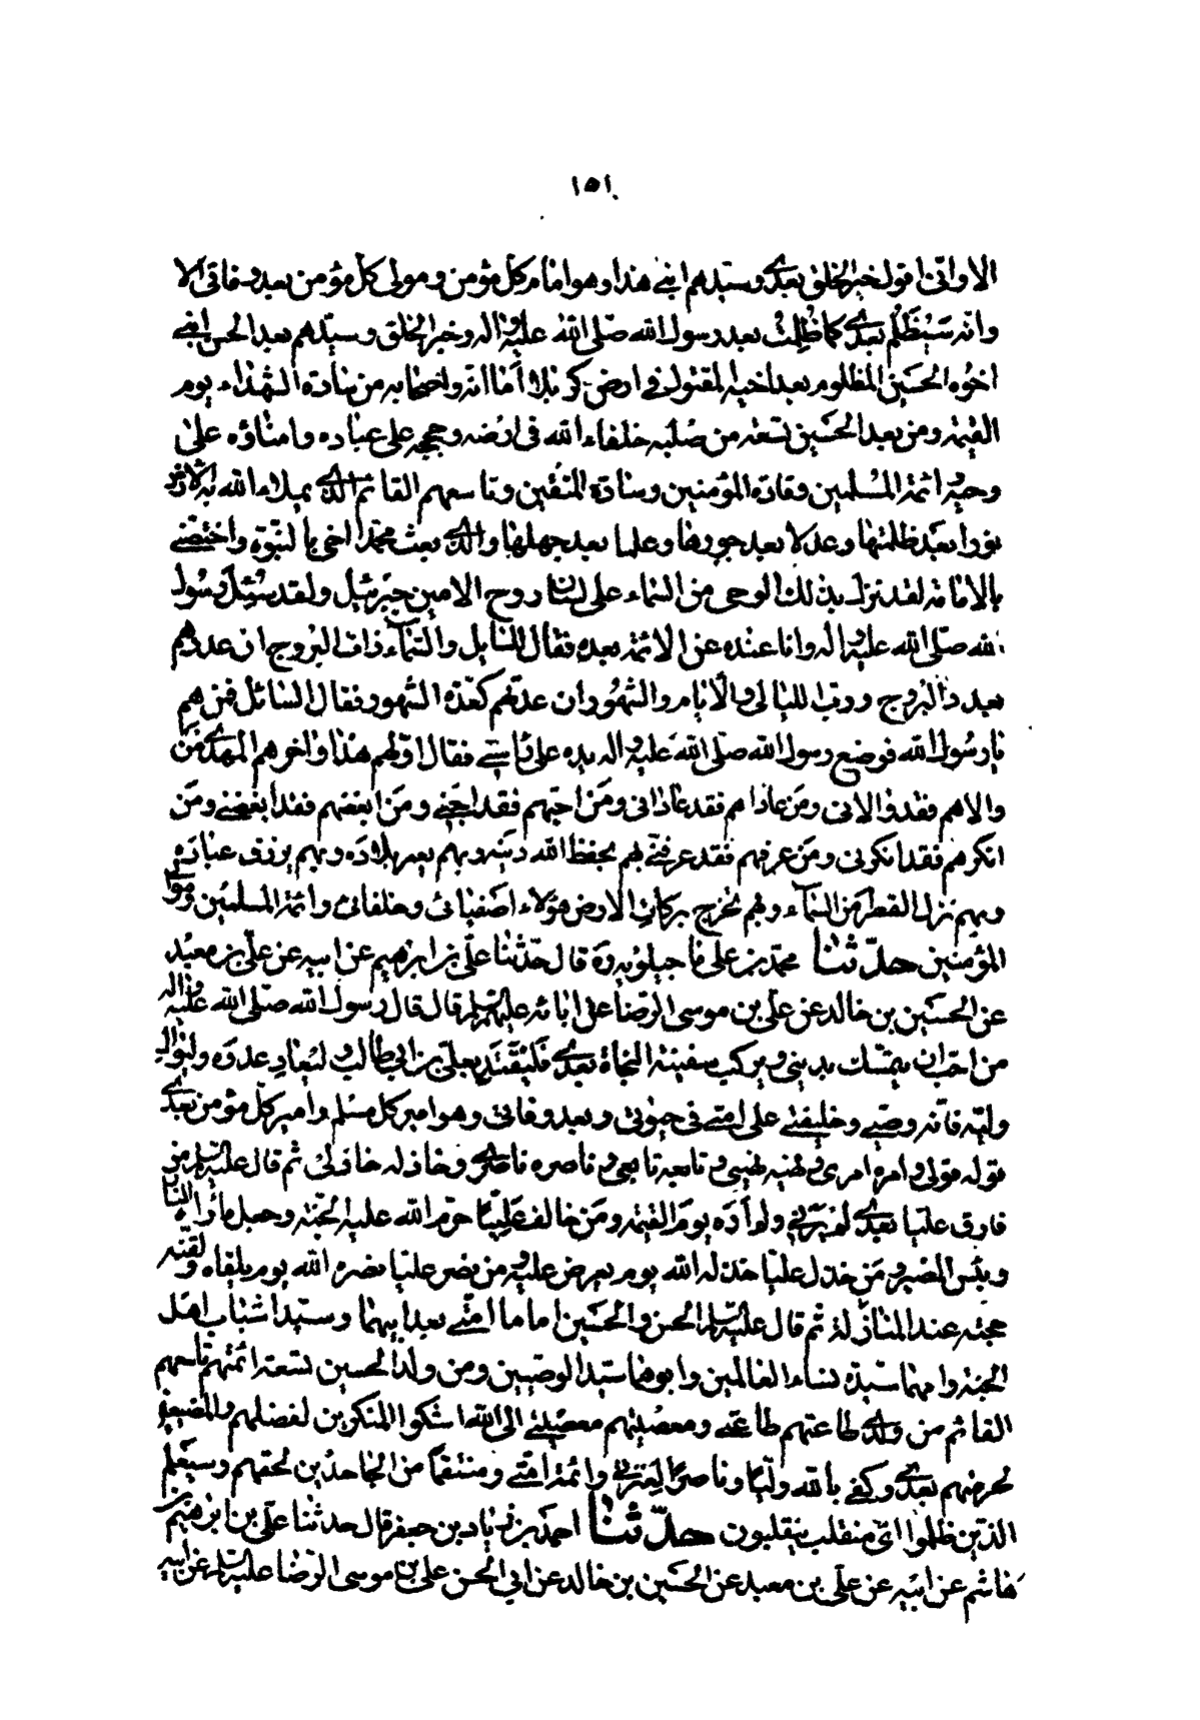 ١٥١
الا واني اقول خير الخلق بعدي وسيدهم ابني هذا وهو امام كل مؤمن ومولى كل مؤمن بعد وفاتي الا
وانه سيظلم بعدي كما ظلمت بعد رسول الله صلى الله عليه واله وخير الخلق وسيدهم بعد الحسن ابني
اخوه الحسين المظلوم بعد اخيه المقتول في ارض كربلا اما انه واصحابه من سادة الشهداء يوم
القيمة ومن بعد الحسين تسعة من صلبه خلفاء الله في ارضه وحججه على عباده وامناؤه على
وحيه وائمة المسلمين وقادة المؤمنين وسادة المتقين وتاسعهم القائم الذي يملاء الله به الارض
نورا بعد ظلمتها وعدلا بعد جورها وعلما بعد جهلها والذي بعث محمدا اخي بالنبوة واختصني
بالامامة لقد نزل بذلك الوحي من السماء على لسان روح الامين جبرئيل ولقد سئل رسول
الله صلى الله عليه واله وانا عنده عن الائمة بعده فقال للسايل والسماء ذات البروج ان عددهم
بعدد البروج ورب الليالي والايام والشهور ان عدتهم كعدة الشهور فقال السائل فمن هم
يا رسول الله فوضع رسول الله صلى الله عليه واله يده على راسي فقال اولهم هذا واخرهم المهدي من
والاهم فقد والاني ومن عاداهم فقد عاداني ومن احبهم فقد احبني ومن ابغضهم فقد ابغضني ومن
انكرهم فقد انكرني ومن عرفهم فقد عرفني بهم يحفظ الله دينه وبهم يعمر بلاده وبهم يرزق عباده
وبهم نزل القطر من السماء وبهم تخرج بركات الارض هؤلاء اصفيائي وخلفائي وائمة المسلمين وموالي
المؤمنين حدثنا محمد بن علي ماجيلويه ره قال حدثنا علي بن ابرهيم عن ابيه عن علي بن معبد
عن الحسين بن خالد عن علي بن موسى الرضا عن ابائه عليهم السلم قال قال رسول الله صلى الله عليه واله
من احب ان يتمسك بديني ويركب سفينة النجاة بعدي فليقتد بعلي بن ابي طالب وليعاد عدوه وليوال
وليه فانه وصيي وخليفتي على امتي في حيوتي وبعد وفاتي وهو امير كل مسلم وامير كل مؤمن بعدي
قوله قولي وامره امري ونهيه نهيي وتابعه تابعي وناصره ناصري وخاذله خاذلي ثم قال عليه السلم من
فارق عليا بعدي لم يرني ولم اره يوم القيمة ومن خالف عليا حرم الله عليه الجنة وجعل ماواه النار
وبئس المصير ومن خذل عليا خذله الله يوم يعرض عليه ومن نصر عليا نصره الله يوم يلقاه ولقنه
حجته عند المنازلة ثم قال عليه السلم الحسن والحسين اماما امتي بعد ابيهما وسيدا شباب اهل
الجنة وامهما سيدة نساء العالمين وابوهما سيد الوصيين ومن ولد الحسين تسعة ائمة تاسعهم
القائم من ولدي طاعتهم طاعتي ومعصيتهم معصيتي الى الله اشكو المنكرين لفضلهم والمضيعين
لحرمتهم بعدي وكفى بالله وليا وناصرا لعترتي وائمة امتي ومنتقما من الجاحدين لحقهم وسيعلم
الذين ظلموا اي منقلب ينقلبون حدثنا احمد بن زياد بن جعفر قال حدثنا علي بن ابرهيم بن
هاشم عن ابيه عن علي بن معبد عن الحسين بن خالد عن ابي الحسن علي بن موسى الرضا عليه السلم عن ابيه